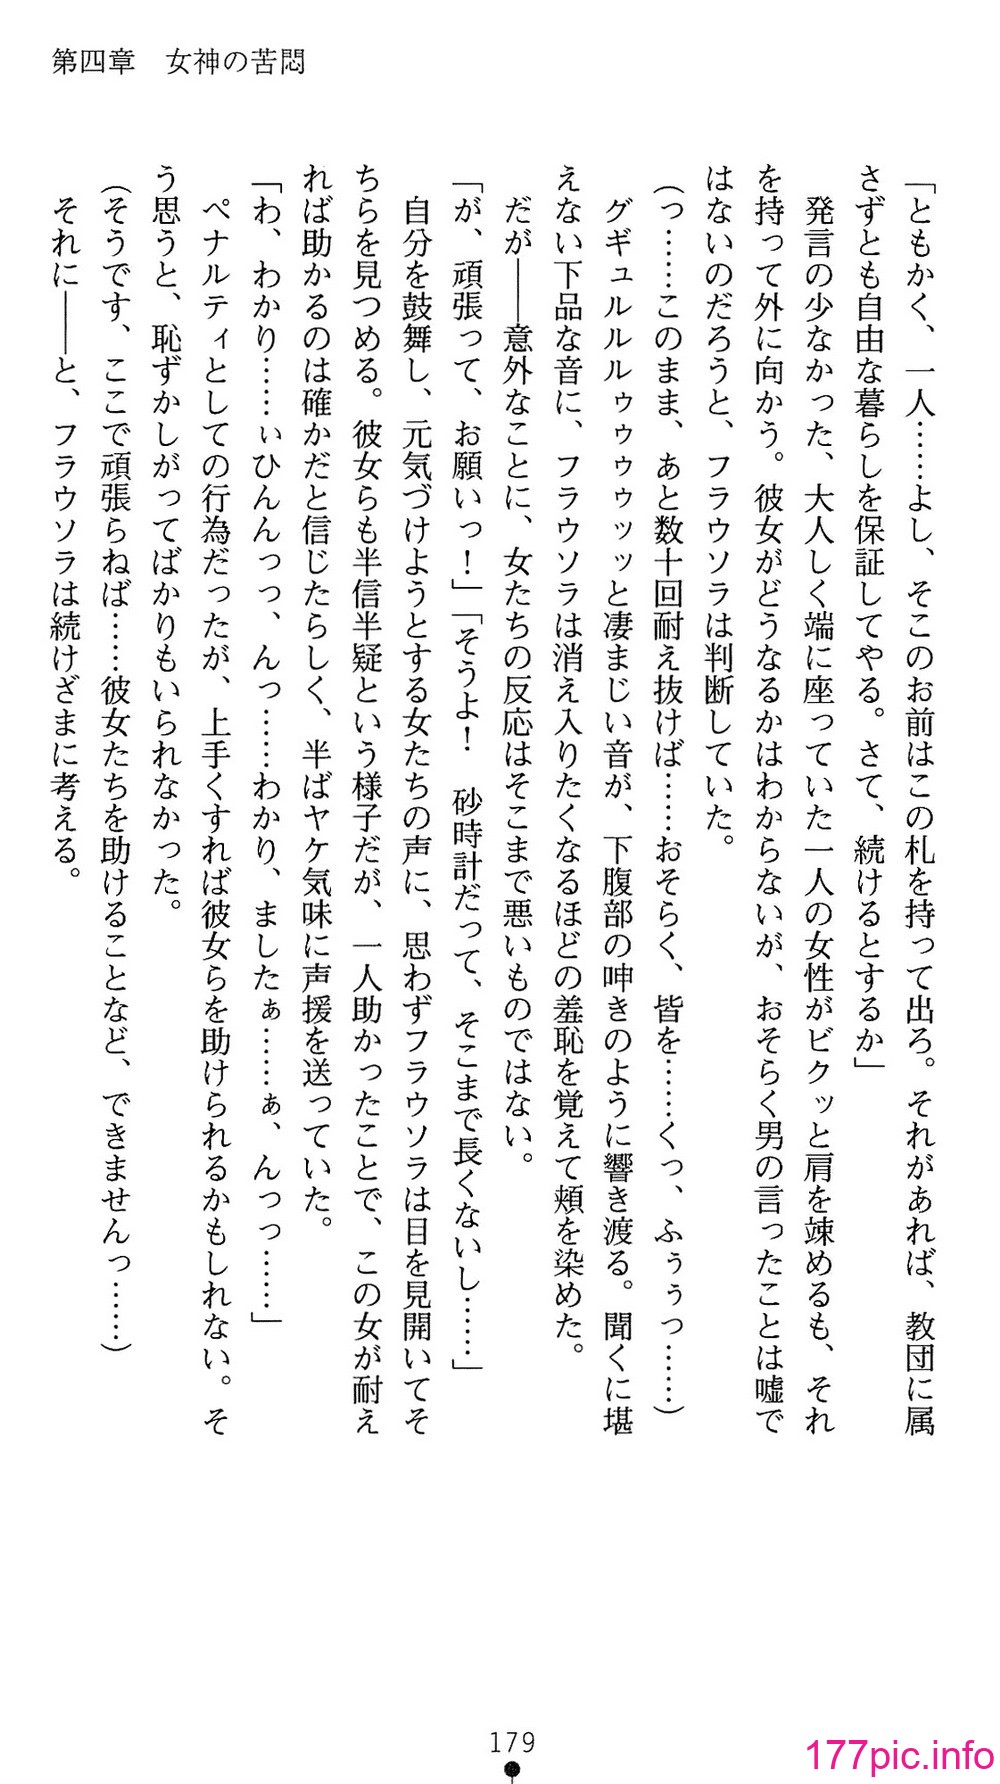 第四章　女神の苦悶
「ともかく、一人……よし、そこのお前はこの札を持って出ろ。それがあれば、教団に属
さずとも自由な暮らしを保証してやる。さて、続けるとするか」
　発言の少なかった、大人しく端に座っていた一人の女性がビクッと肩を竦めるも、それ
を持って外に向かう。彼女がどうなるかはわからないが、おそらく男の言ったことは嘘で
はないのだろうと、フラウソラは判断していた。
（っ……このまま、あと数十回耐え抜けば……おそらく、皆を……くっ、ふぅぅっ……）
　グギュルルルゥゥゥゥッッと凄まじい音が、下腹部の呻きのように響き渡る。聞くに堪
えない下品な音に、フラウソラは消え入りたくなるほどの羞恥を覚えて頬を染めた。
　だが――意外なことに、女たちの反応はそこまで悪いものではない。
「が、頑張って、お願いっ！」「そうよ！　砂時計だって、そこまで長くないし……」
　自分を鼓舞し、元気づけようとする女たちの声に、思わずフラウソラは目を見開いてそ
ちらを見つめる。彼女らも半信半疑という様子だが、一人助かったことで、この女が耐え
れば助かるのは確かだと信じたらしく、半ばヤケ気味に声援を送っていた。
「わ、わかり……ぃひんんっっ、んっ……わかり、ましたぁ……ぁ、んっっ……」
　ペナルティとしての行為だったが、上手くすれば彼女らを助けられるかもしれない。そ
う思うと、恥ずかしがってばかりもいられなかった。
（そうです、ここで頑張らねば……彼女たちを助けることなど、できませんっ……）
　それに――と、フラウソラは続けざまに考える。
179
177pic.info